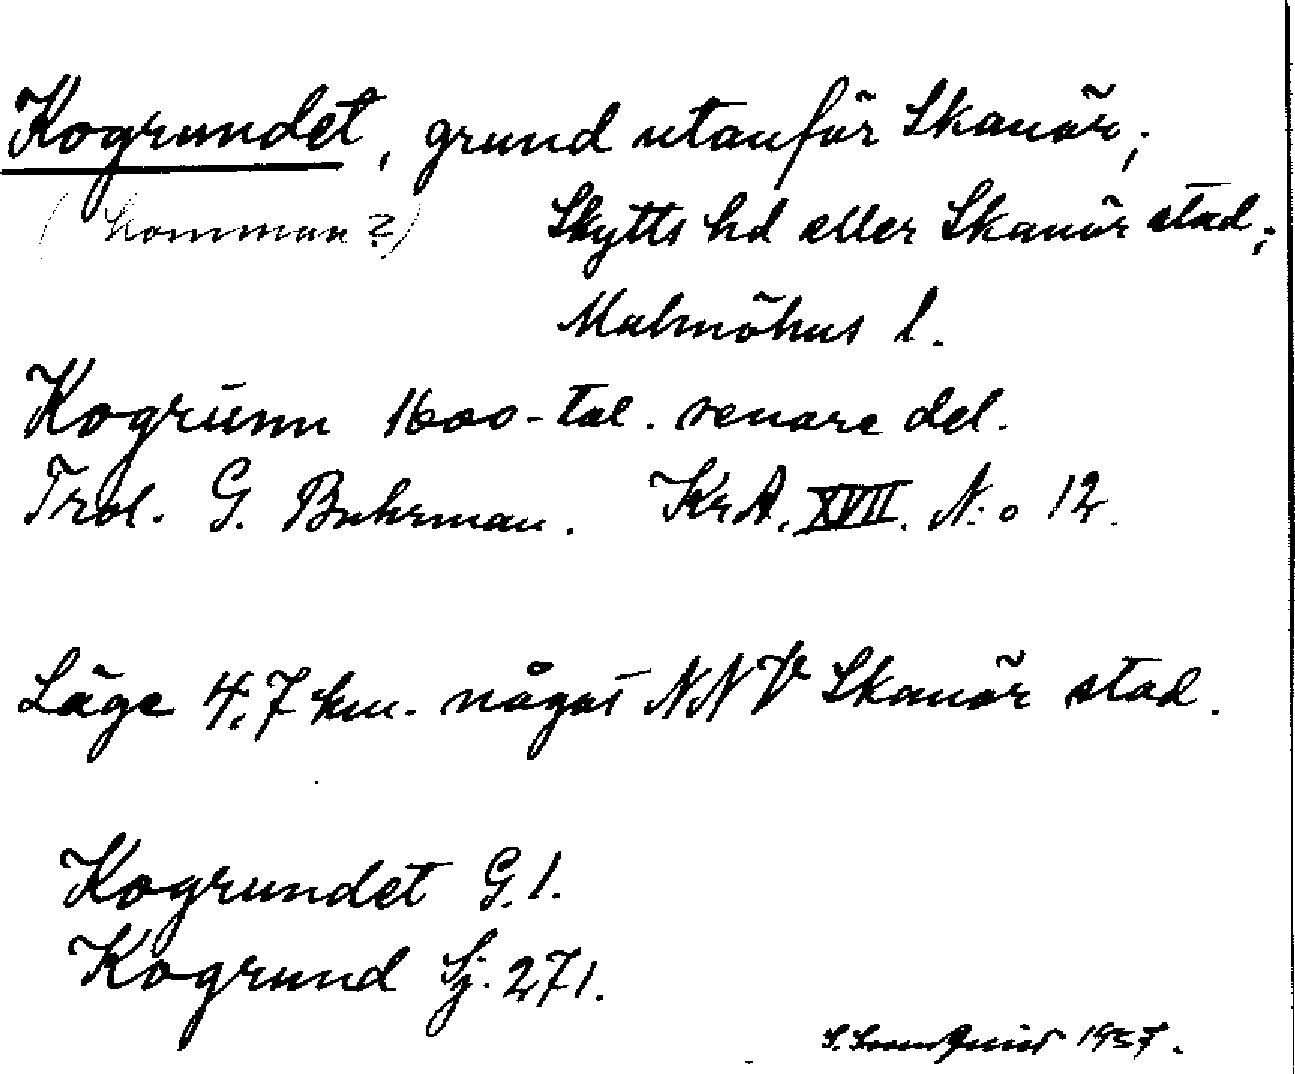 Kogrundet, grund utanför Skanör;
(kommun?) Skytts hd eller Skanör stad;
Malmöhus l.
Kogrünn 1600-tal. senare del.
Trol. G. Buhrman. KrA. XVII. N:o 12.
Läge 4,7 km. något NNV Skanör stad.
Kogrundet G. 1.
Kogrund Sj. 271.
1937.